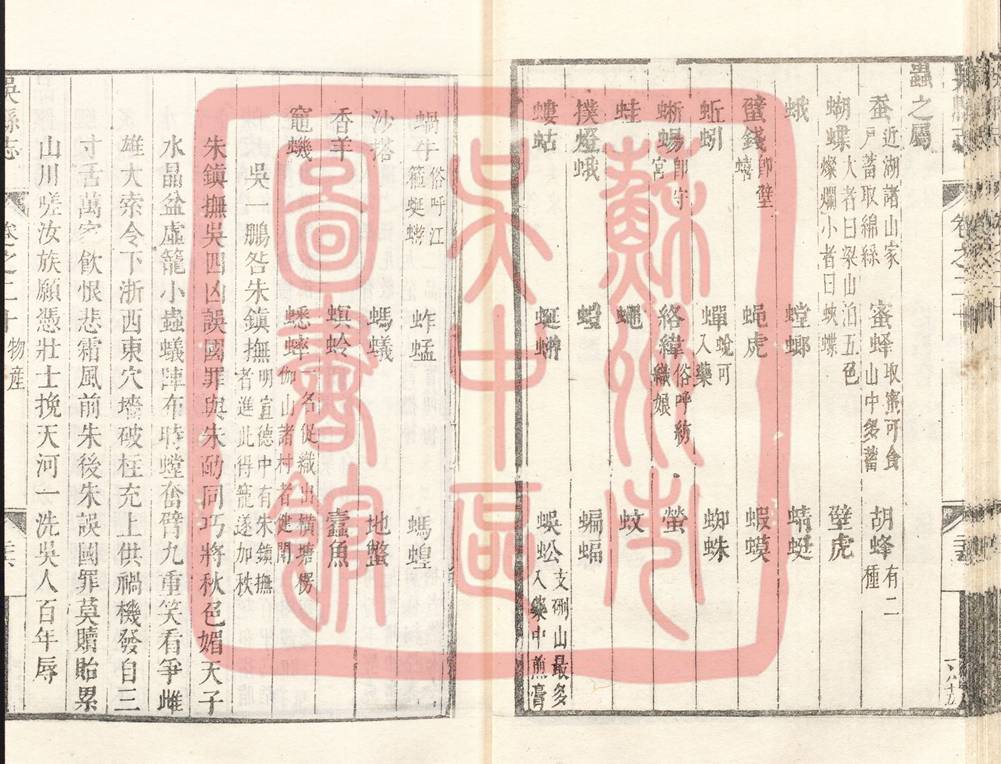 蟲之屬
蚕 近湖諸山家戶蓄取綿絲 蜜蜂 取蜜可食山中多蓄 胡蜂 有二種
蝴蝶 大者曰梁山泊五色燦爛小者曰蛺蝶 壁虎
蛾 螳螂 蜻蜓
壁錢 卽壁蟢 蝇虎 蝦蟆
蚯蚓 蟬 蛻可入藥 蜘蛛
蜥蜴 卽守宮 絡緯 俗呼紡織娘 螢
蛙 蠅 蚊
撲燈蛾 蝙蝠
螻蛄 蜒蚰 蜈蚣 支硎山最多入藥中煎膏
吳縣志 卷之二十 物產
蝸牛 俗呼江箍蜒蝣 蚱蜢 螞蝗
沙搭 螞蟻 地蟞
香羊 螟蛉 蠹魚
竈蟣 蟋蟀 一名促織出橫塘楞伽山諸村者健鬬
吳一鵬咎朱鎮撫 明宣德中有朱鎮撫者進此得寵遂加秩
朱鎮撫吳四凶誤國罪與朱勔同巧將秋色媚天子
水晶盆虛籠小蟲蟻陣布時螳奮臂九重笑看爭雌
雄大索令下浙西東穴墻破柱充上供禍機發自三
寸舌萬家飲恨悲霜風前朱後朱誤國罪莫贖貽累
山川嗟汝族願憑壯士挽天河一洗吳人百年辱
蘇州市吳中區圖書館